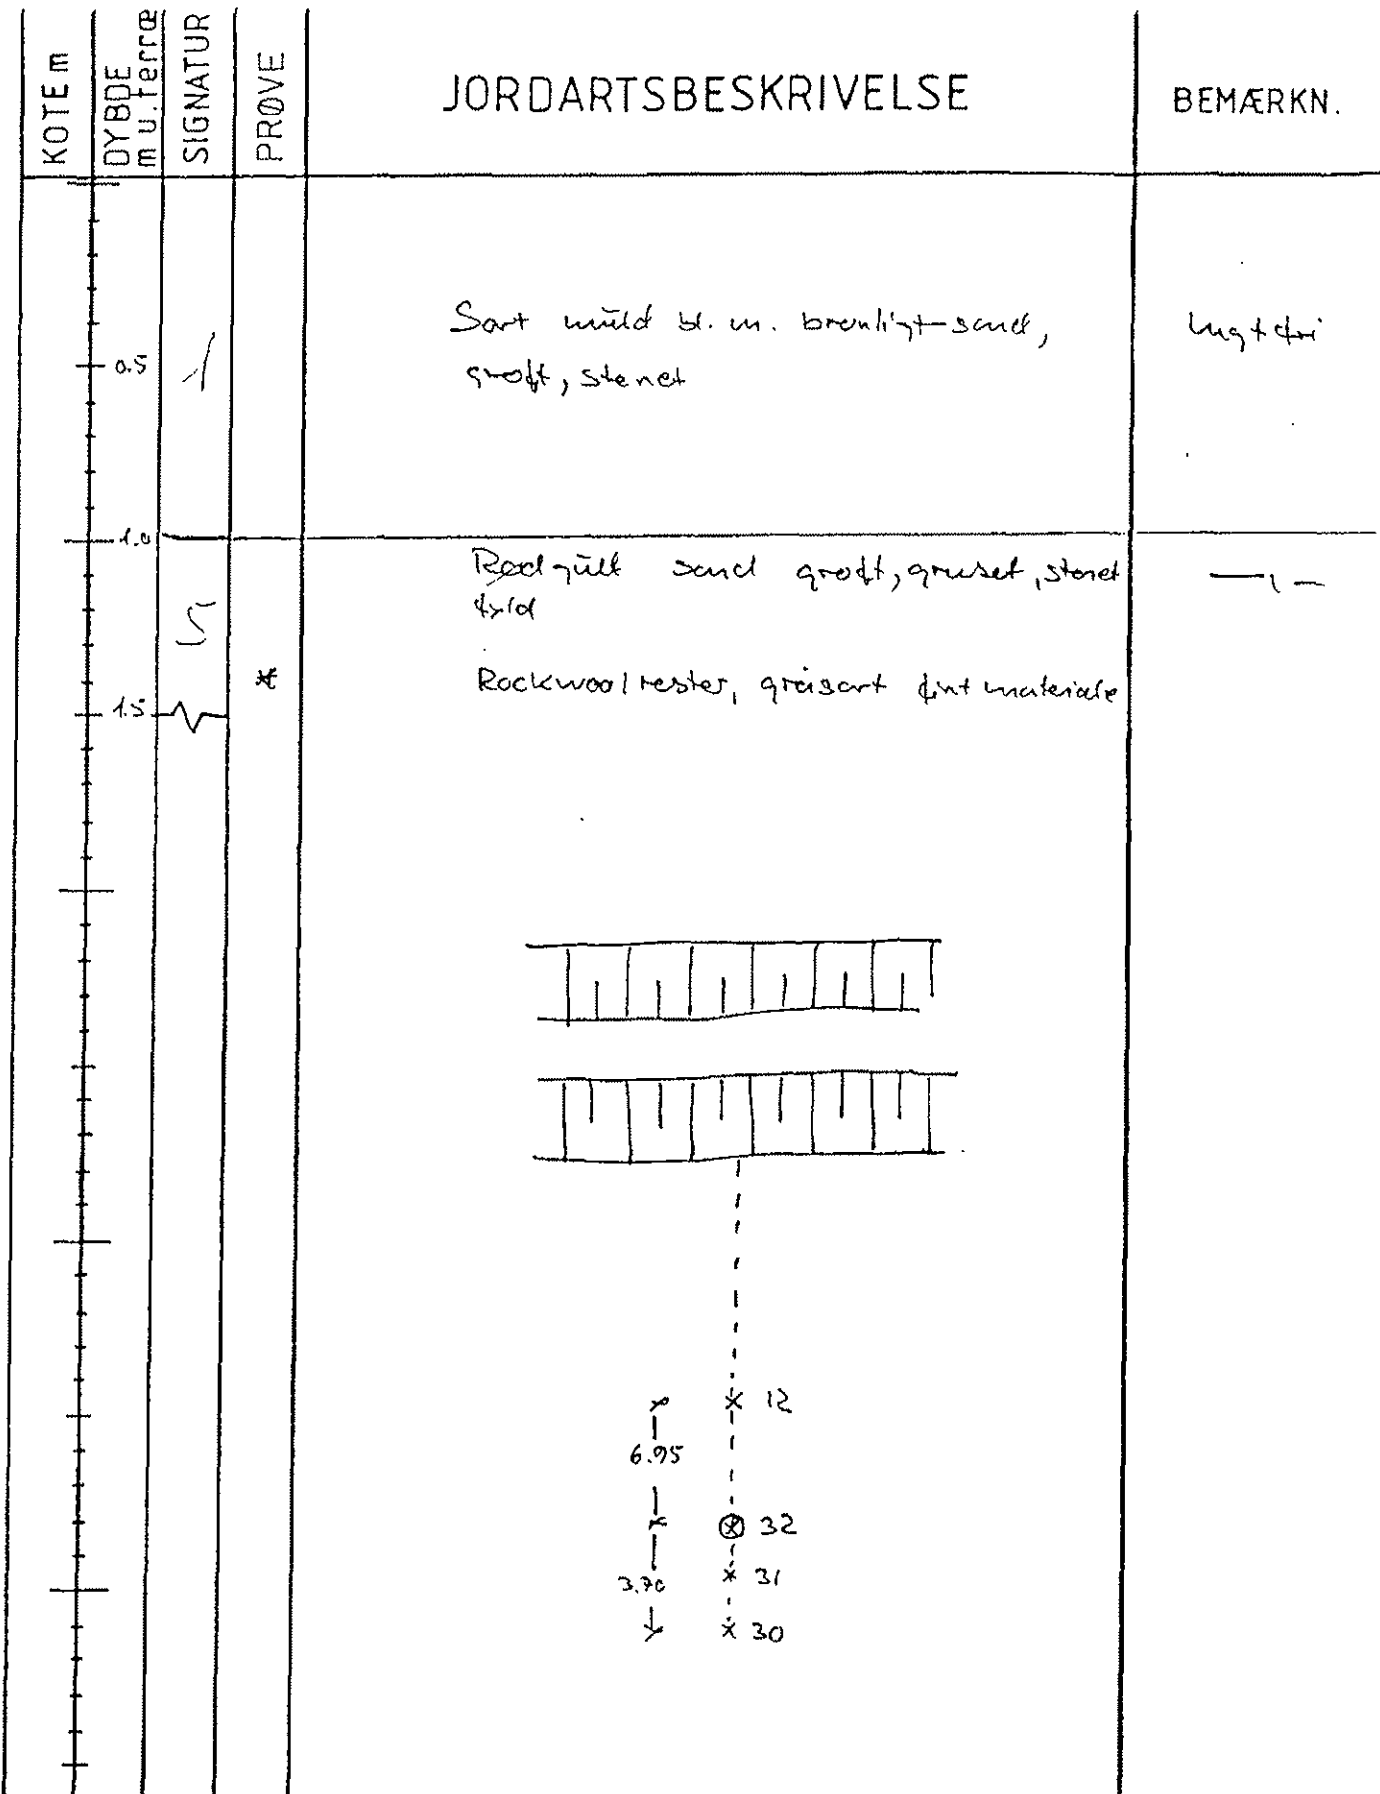 KOTE m
DYBDE
m u. terræ
SIGNATUR
PRØVE
JORDARTSBESKRIVELSE
BEMÆRKN.
Sort muld bl. m. brunligt sand,
groft, stenet
lugtfri
0.5
1
1.0
Rødgult sand groft, gruset, stenet
fyld
— ı —
5
Rockwoolrester, gråsort fint materiale
*
1.5
12
6.95
32
31
3.70
30